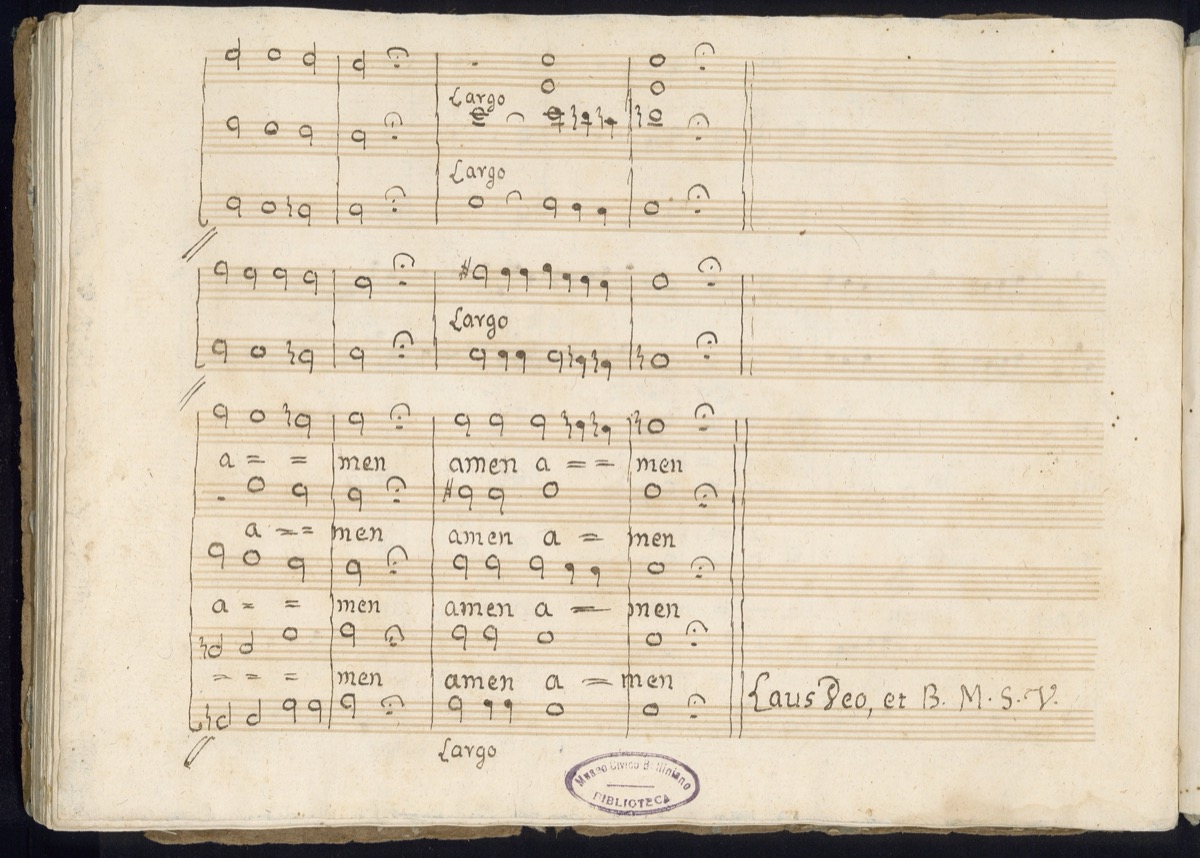 Largo
Largo
Largo
a = = men amen a = = men
a = = men amen a = men
a = = men amen a = men
= = = men amen a = men
Laus Deo, et B. M. S. V.
Largo
Museo Civico Belliniano
BIBLIOTECA